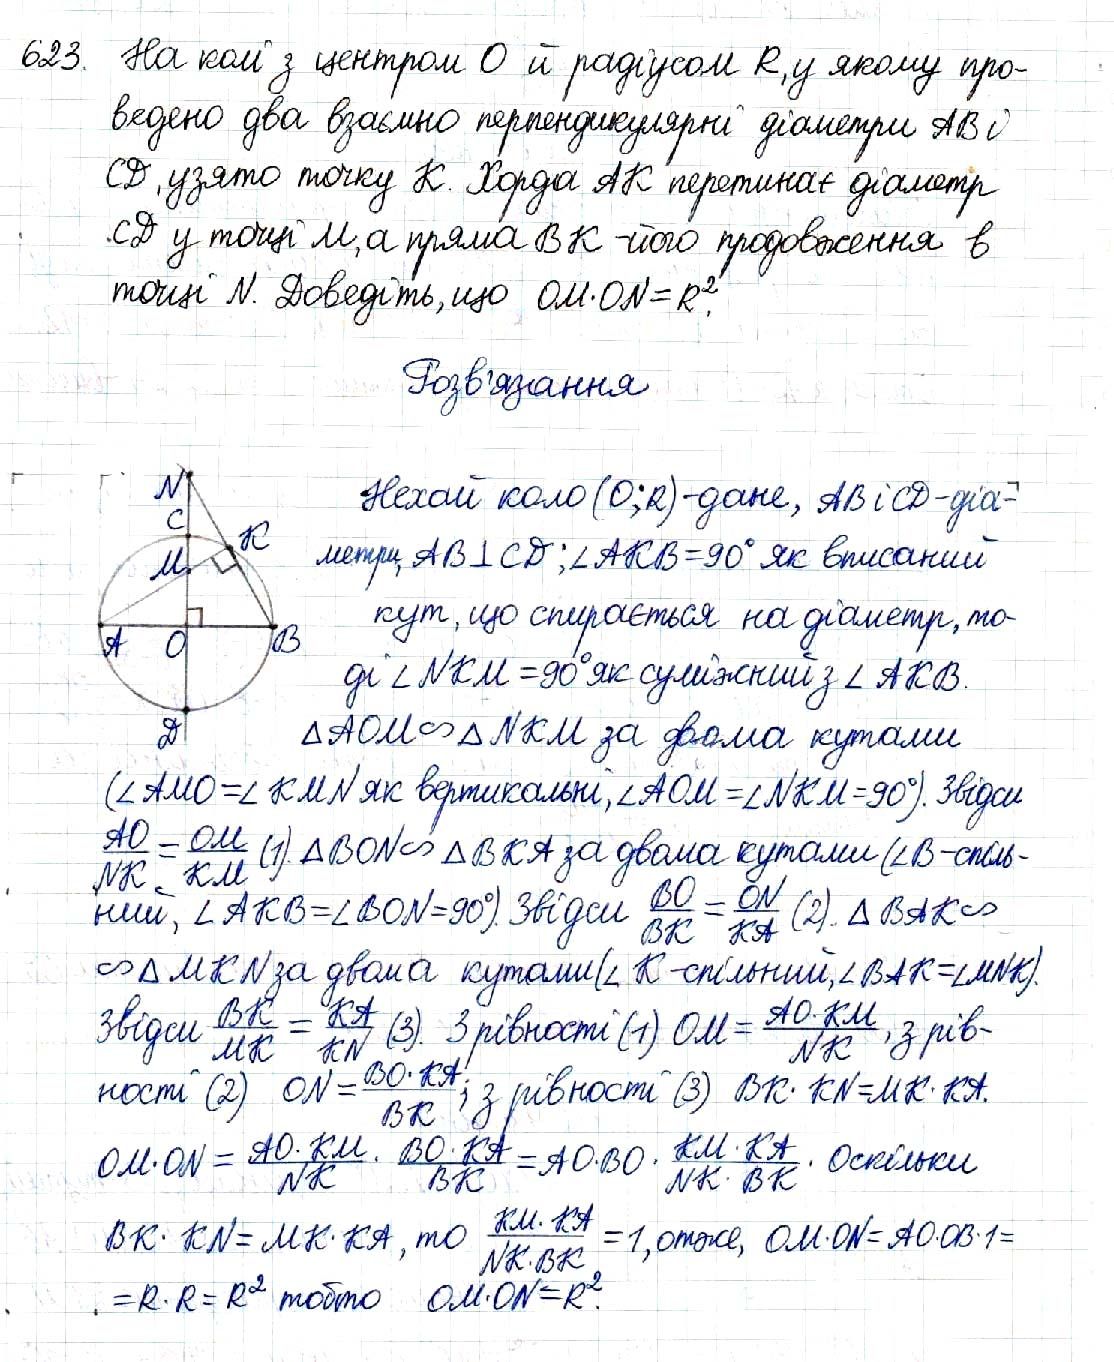 623. На колі з центром O й радіусом R, у якому про-
ведено два взаємно перпендикулярні діаметри AB і
CD, узято точку K. Хорда AK перетинає діаметр
CD у точці M, а пряма BK - його продовження в
точці N. Доведіть, що OM·ON=R².
Розв'язання
N
C
K
M
A
O
B
D
Нехай коло (O;R)-дане, AB і CD-діа-
метри, AB⊥CD; ∠AKB=90° як вписаний
кут, що спирається на діаметр, то-
ді ∠NKM=90° як суміжний з ∠AKB.
△AOM∽△NKM за двома кутами
(∠AMO=∠KMN як вертикальні, ∠AOM=∠NKM=90°). Звідси
AO/NK=OM/KM (1). △BON∽△BKA за двома кутами (∠B-спіль-
ний, ∠AKB=∠BON=90°). Звідси BO/BK=ON/KA (2). △BAK∽
∽△MKN за двома кутами (∠K-спільний, ∠BAK=∠MNK).
Звідси BK/MK=KA/KN (3). З рівності (1) OM=AO·KM/NK, з рів-
ності (2) ON=BO·KA/BK; з рівності (3) BK·KN=MK·KA.
OM·ON=AO·KM/NK·BO·KA/BK=AO·BO·KM·KA/NK·BK. Оскільки
BK·KN=MK·KA, то KM·KA/NK·BK=1, отже, OM·ON=AO·OB·1=
=R·R=R² тобто OM·ON=R².